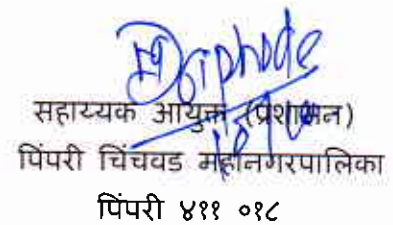 सहाय्यक आयुक्त (प्रशासन)
पिंपरी चिंचवड महानगरपालिका
पिंपरी ४११ ०१८